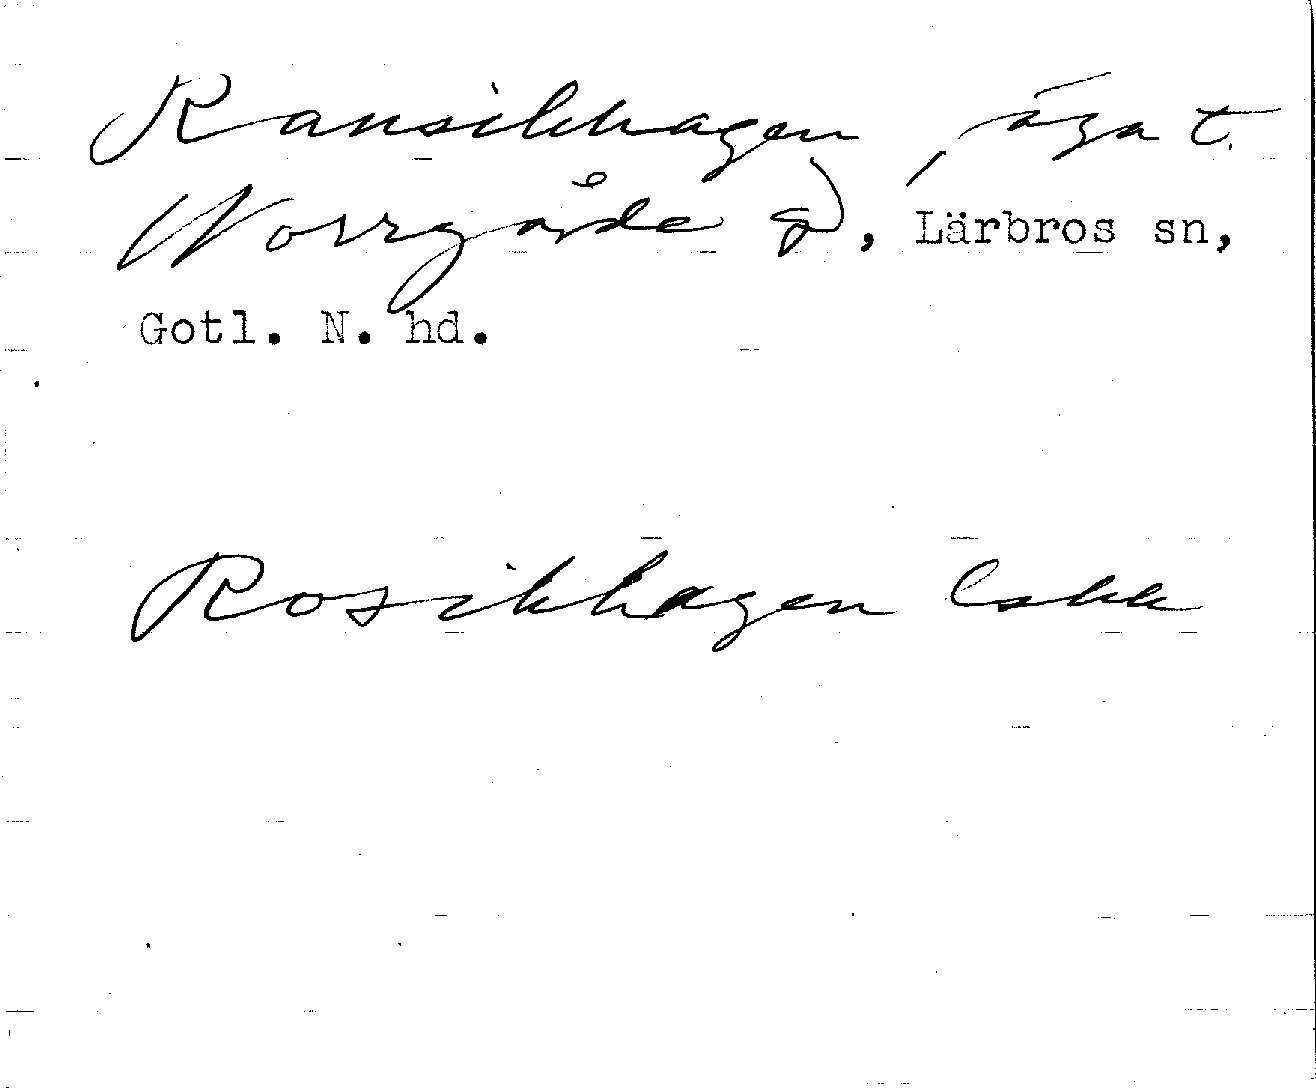 Ransikhagen, äga t.
Norrgårda g), Lärbros sn,
Gotl. N. hd.
Rosikhagen Eskk